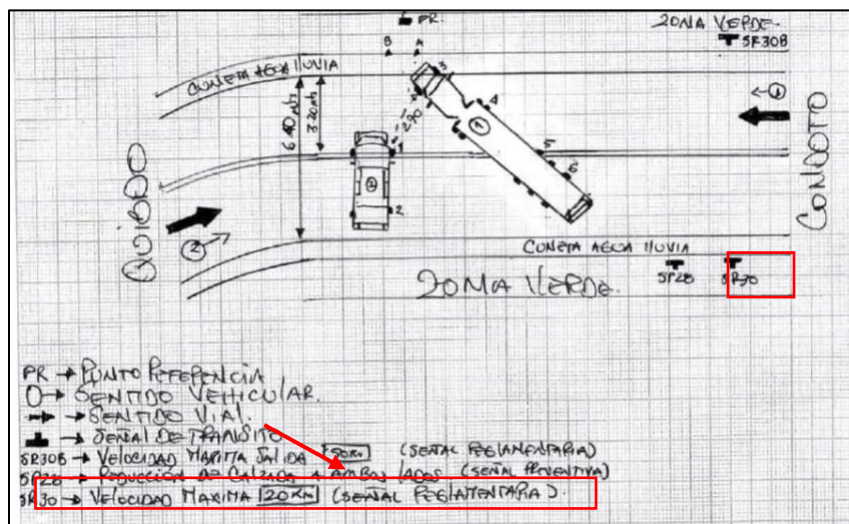 PR.
ZONA VERDE.
SR30B
B A
CUNETA AGUA LLUVIA
3
4
6.40 mts
3.20 mts
2.90
1
1
5
6
1
2
2
QUIBDO
2
CONDOTO
CUNETA AGUA LLUVIA
ZONA VERDE.
SP28
SR30
PR → PUNTO REFERENCIA
0 → SENTIDO VEHICULAR.
→ SENTIDO VIAL.
→ SEÑAL DE TRANSITO
SR30B → VELOCIDAD MAXIMA SALIDA 50Km (SEÑAL REGLAMENTARIA)
SP28 → REDUCCION DE CALZADA A AMBOS LADOS (SEÑAL PREVENTIVA)
SR30 → VELOCIDAD MAXIMA 20Km (SEÑAL REGLAMENTARIA).